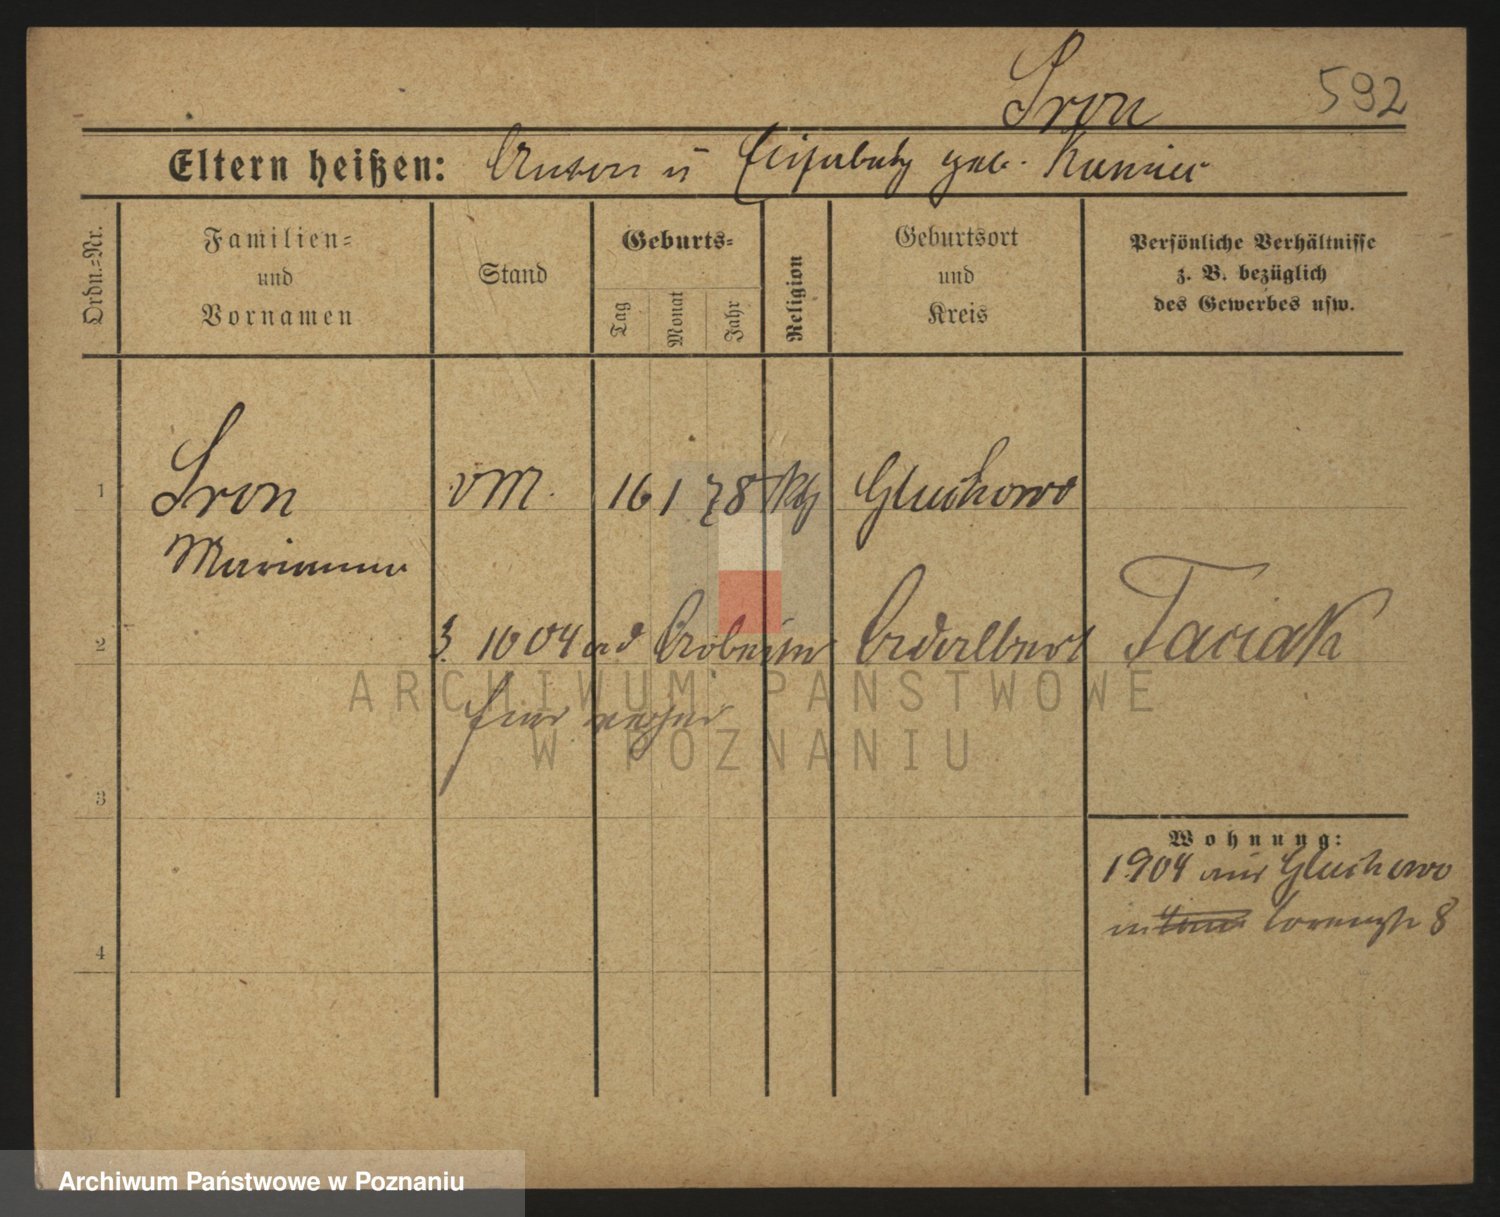 Sron 592
Eltern heißen: Anton u Elisabeth geb.
Ordn.=Nr.
Familien=
und
Vornamen
Stand
Geburts=
Tag
Monat
Jahr
Religion
Geburtsort
und
Kreis
Persönliche Verhältnisse
z. B. bezüglich
des Gewerbes usw.
1 Sron 16 1 78 kth Gluchowo
Marianna
2 3. 10 04 ad Arbeiter Adalbert Taciak
3
Wohnung:
1904 aus Gluchowo
in Lorenzstr 8
4
ARCHIWUM PAŃSTWOWE
W POZNANIU
Archiwum Państwowe w Poznaniu